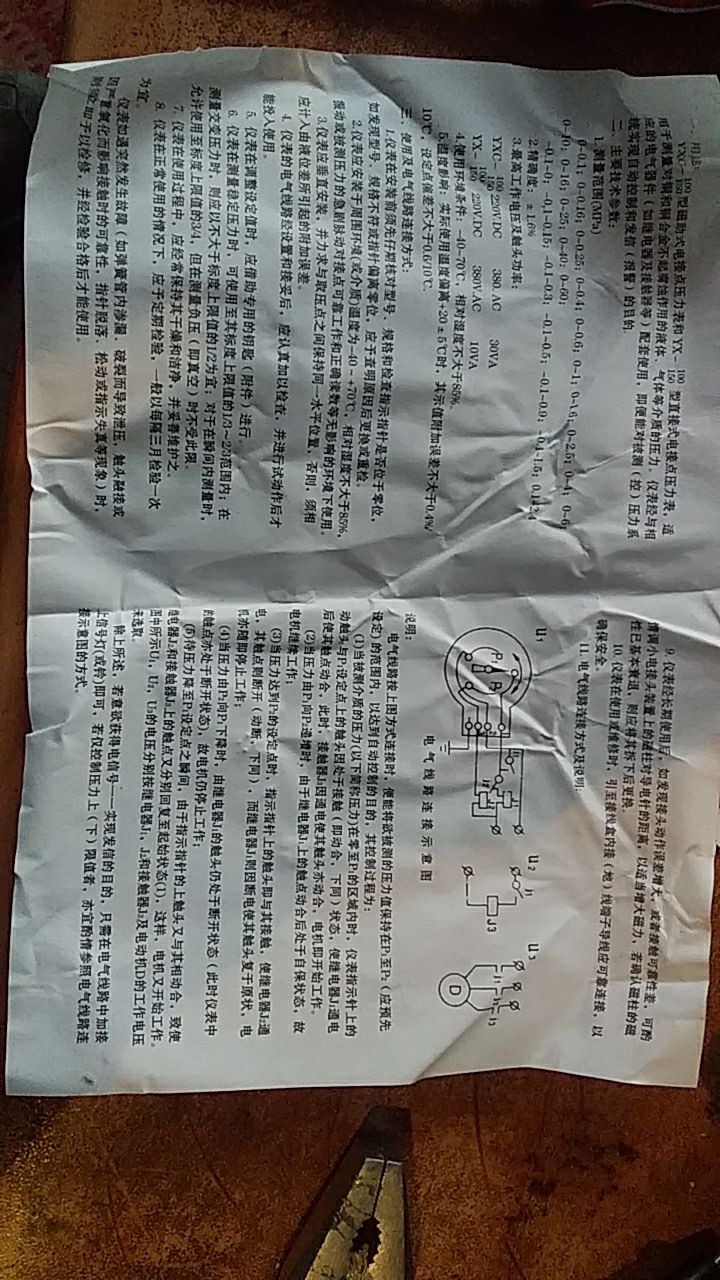 一、用途：
YXC-100/150型磁助式电接点压力表和 YX-100/150型直接式电接点压力表，适
用于测量对铜和铜合金不起腐蚀作用的液体、气体等介质的压力。仪表经与相
应的电气器件（如继电器及接触器等）配套使用，即便能对被测（控）压力系
统实现自动控制和发信（报警）的目的。
二、主要技术参数：
1.测量范围(MPa)
0~0.1；0~0.16；0~0.25；0~0.4；0~0.6；0~1；0~1.6；0~2.5；0~4；0~6；
0~10；0~16；0~25；0~40；0~60；
-0.1~0；-0.1~0.15；-0.1~0.3；-0.1~0.5；-0.1~0.9；-0.1~1.5；
2.精确度：±1.6%
3.最高工作电压及触头功率：
YXC-100/150 220V.DC 380.AC 30VA
YX-100/150 220V.DC 380V.AC 10VA
4.使用环境条件：-40~70℃，相对湿度不大于85%。
5.温度影响：实际使用温度偏离+20±5℃时，其示值附加误差不大于0.4%/
10℃，设定点偏差不大于0.6/10℃.
三、使用及电气线路连接方式：
1.仪表在安装前须先仔期核对型号、规格和检查指示指针是否位于零位，
如发现型号、规格不符或指针偏离零位，应予查明原因后更换或重检。
2.仪表应安装于周围环境(或介质)温度为-40~+70℃，相对湿度不大于85%，
振动或被测压力的急剧脉动对接点可靠工作和正确读数等无影响的环境下使用。
3.仪表应垂直安装，并力求与取压点之间保持同一水平位置，否则，须相
应计入由液位差所引起的附加误差。
4. 仪表的电气线路经设置和接妥后，应认真加以检查，并进行试动作后才
能投入使用。
5. 仪表在调整设定值时，应借助专用的钥匙（附件）进行。
6. 仪表在测量稳定压力时，可使用至其标度上限值的1/3~2/3范围内；在
测量交变压力时，则应以不大于标度上限值的1/2为宜；对于在瞬间内测量时，
允许使用至标度上限值的3/4，但在测量负压（即真空）时不受此限。
7. 仪表在使用过程中，应经常保持其干燥和洁净，并妥善维护之。
8. 仪表在正常使用的情况下，应予定期检验，一般以每隔三月检验一次
为宜。
仪表如遇突然发生故障（如弹簧管内渗漏、破裂而导致泄压，触头融接或
因严重氧化而影响接触时的可靠性，指针脱落、松动或指示失真等现象）时，
则须即予以检修，并经检验合格后才能使用。
9. 仪表经长期使用后，如发现接头动作误差增大，或者接触可靠性差，可酌
情调小电接头装置上的磁柱对导电针的距离，以适当增大磁力，若确认磁柱的磁
性已基本衰退，则应将其拆下后更换。
10. 仪表在使用或维修时，引至接线盒内接（地）线端子导线应可靠连接，以
确保安全。
11. 电气线路连接方式及说明：
U1 U2 U3
P1 P2
J1 J2 J1 J3 J3
D
电气线路连接示意图
说明：
电气线路按上图方式连接时，便能将欲被测的压力值保持在P1至P2（应预先
设定）的范围内，以达到自动控制的目的，其控制过程为：
(1)当被测介质的压力(以下简称压力)在零至P1的区域内时，仪表指示针上的
动触头与P1设定点上的触头因处于接触（即动合，下同）状态，使继电器J1通电
后使其触点动合，此时，接触器J3因通电使其触头亦动合，电机即开始工作。
(2)当压力由P1向P2递增时，由于继电器J1上的触点动合后处于自保状态，故
电机继续工作；
(3)当压力达到P2的设定点时，指示指针上的触头即与其接触，使继电器J2通
电，其触点则断开（动断，下同），而继电器J1则因断电使其触头复于原状，电
机亦随即停止工作；
(4)当压力由P2向P1下降时，由继电器J1的触头仍处于断开状态（此时仪表中
的触点亦处于断开状态)，故电机仍停止工作；
(5)待压力降至P1设定点之瞬间，由于指示指针的上触头又与其相动合，致使
继电器J1及接触器J3上的触点又分别回复至起始状态(1)，这样，电机又开始工作。
图中所示U1、U2、U3的电压分别按继电器J1、J2和接触器J3及电动机D的工作电压
来选取。
除上所述，若意欲获得电信号——实现发信的目的，只需在电气线路中加接
上信号灯(或铃)即可，若仅控制压力上（下）限值者，亦宜酌情参照电气线路连
接示意图的方式。